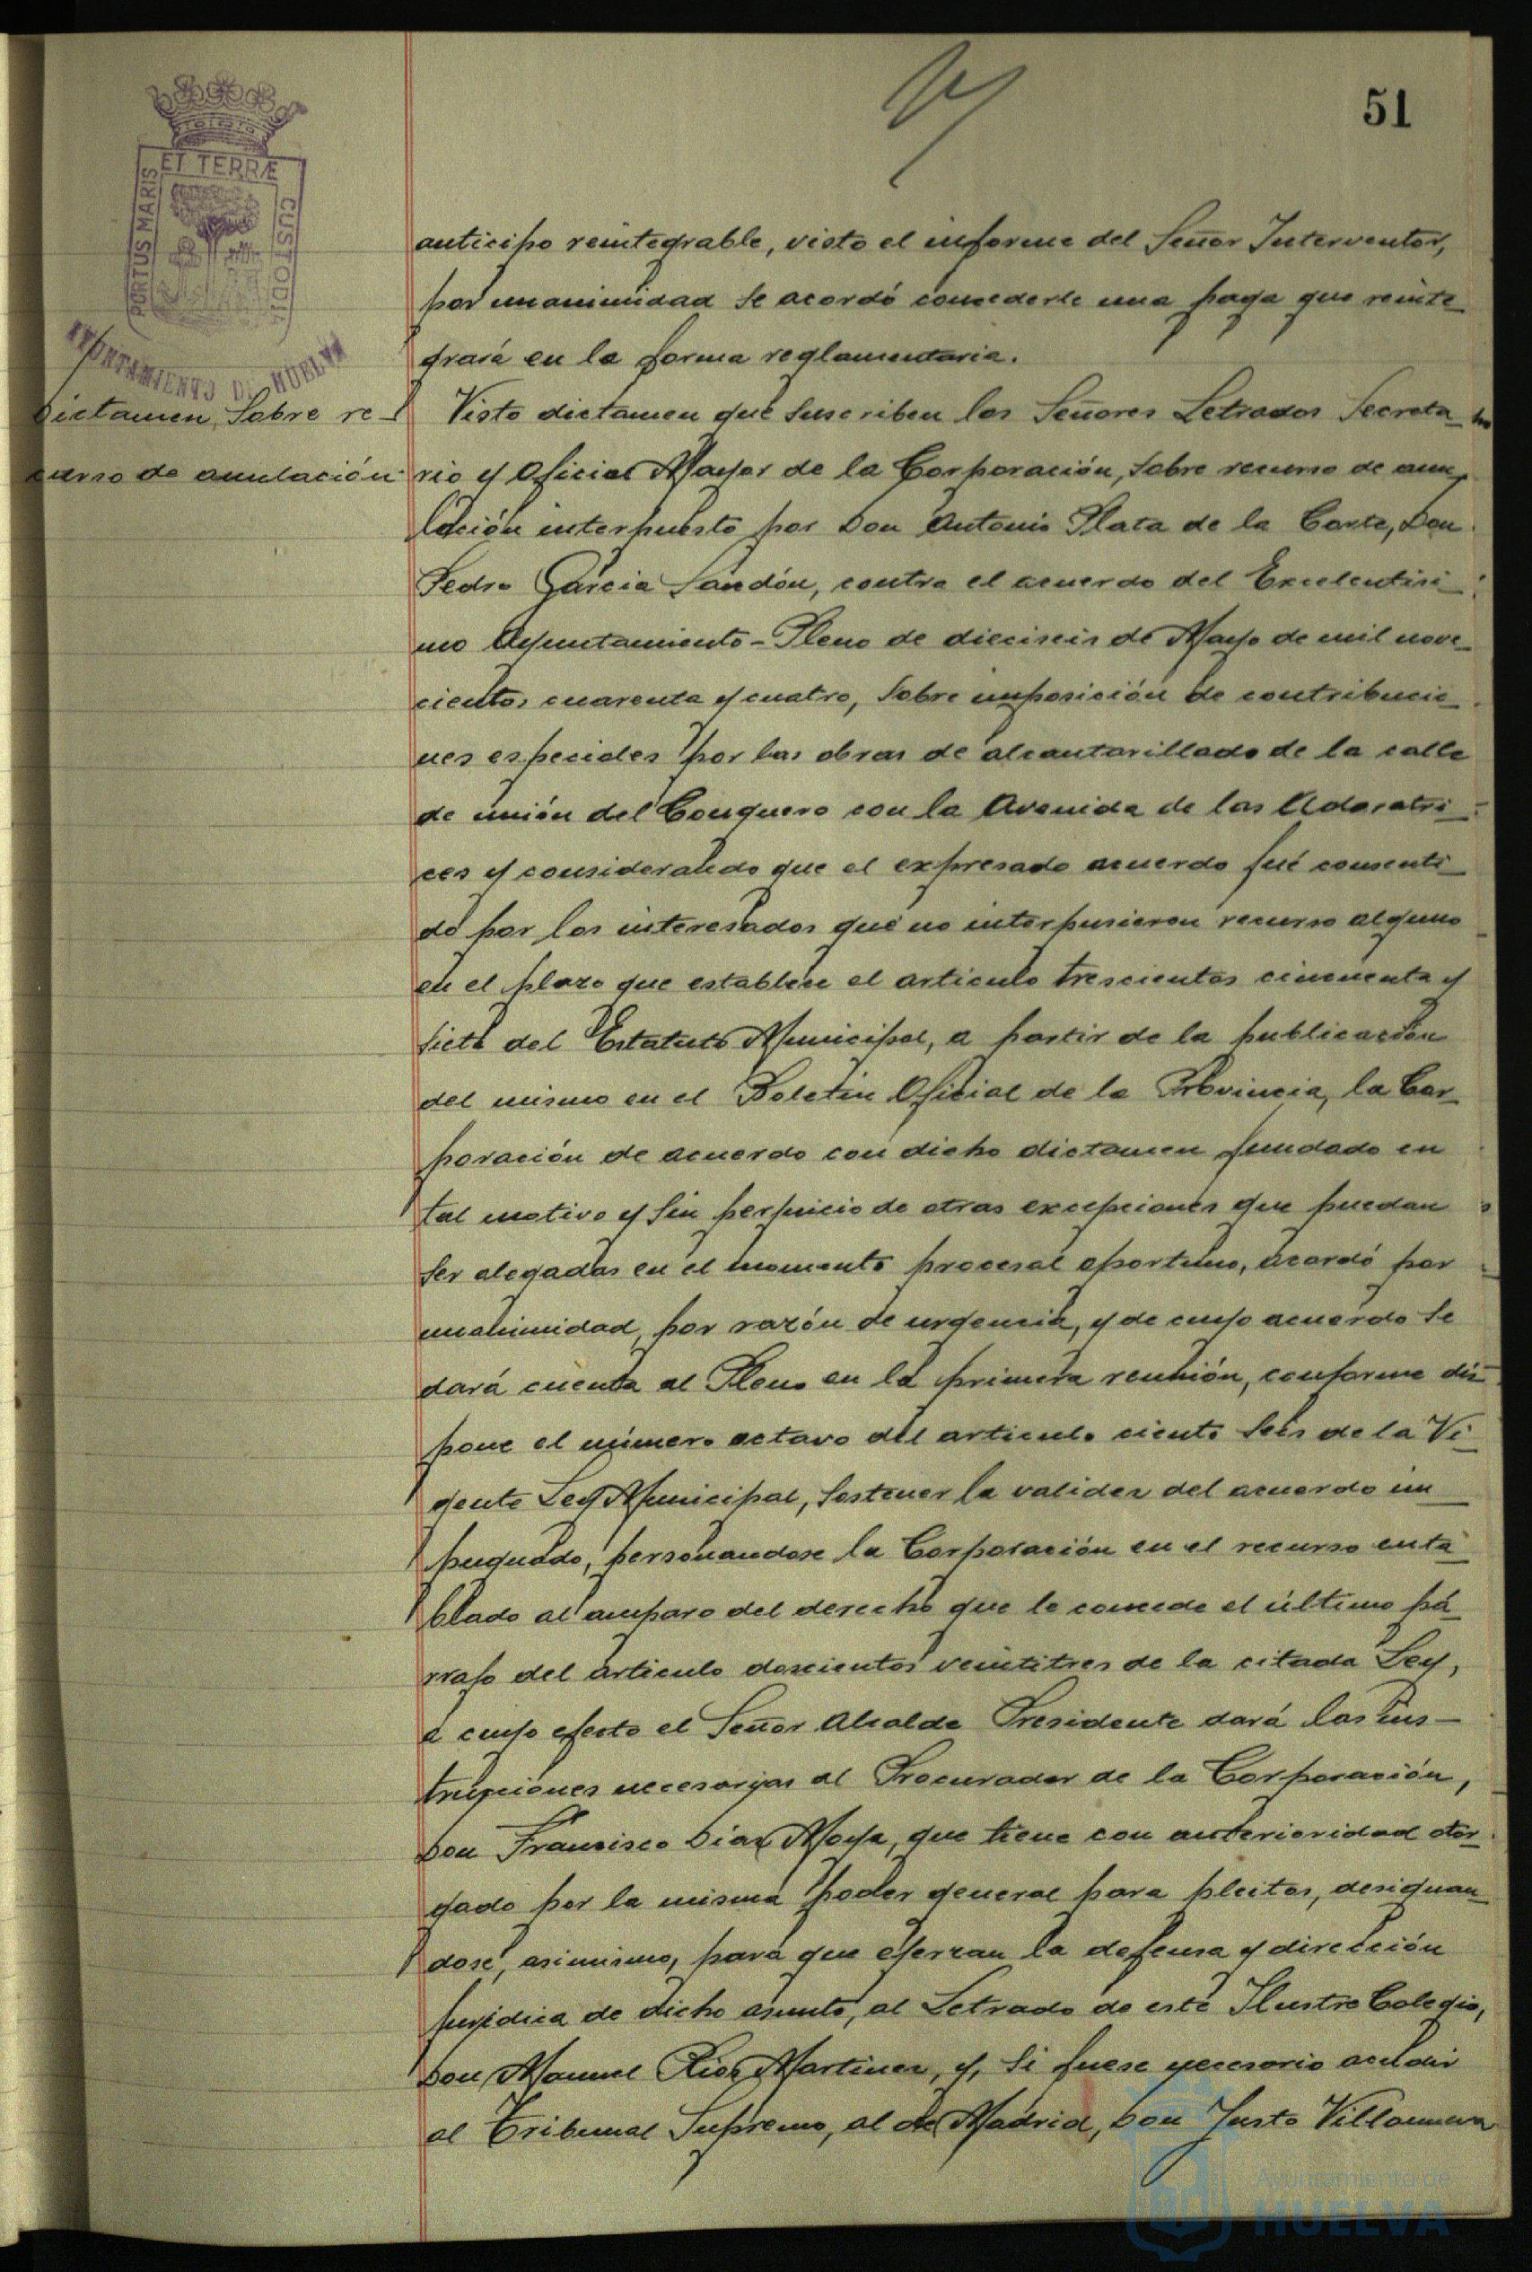 51
PORTUS MARIS ET TERRÆ CUSTODIA
AYUNTAMIENTO DE HUELVA
anticipo reintegrable, visto el informe del Señor Interventor,
por unanimidad se acordó concederle una paga que reinte-
grará en la forma reglamentaria.
Dictamen Sobre re-
curso de anulación
Visto dictamen que suscriben los Señores Letrados Secreta-
rio y Oficial Mayor de la Corporación, sobre recurso de anu-
lación interpuesto por Don Antonio Plata de la Corte, Don
Pedro Garcia Sandón, contra el acuerdo del Excelentisi-
mo Ayuntamiento-Pleno de dieciseis de Mayo de mil nove-
cientos cuarenta y cuatro, sobre imposición de contribucio-
nes especiales por las obras de alcantarillado de la calle
de unión del Conquero con la Avenida de las Adoratri-
ces y considerando que el expresado acuerdo fué consenti-
do por los interesados que no interpusieron recurso alguno
en el plazo que establece el articulo trescientos cincuenta y
siete del Estatuto Municipal, a partir de la publicación
del mismo en el Boletin Oficial de la Provincia, la Cor-
poración de acuerdo con dicho dictamen fundado en
tal motivo y sin perjuicio de otras excepciones que puedan
ser alegadas en el momento procesal oportuno, acordó por
unanimidad, por razón de urgencia, y de cuyo acuerdo se
dará cuenta al Pleno en la primera reunión, conforme dis-
pone el número octavo del articulo ciento seis de la Vi-
gente Ley Municipal, sostener la validez del acuerdo im-
pugnado, personandose la Corporación en el recurso enta-
blado al amparo del derecho que le concede el último pá-
rrafo del articulo doscientos veintitres de la citada Ley,
a cuyo efecto el Señor Alcalde Presidente dará las ins-
trucciones necesarias al Procurador de la Corporación,
Don Francisco Diaz Moya, que tiene con anterioridad otor-
gado por la misma poder general para pleitos, designan-
dose, asimismo, para que ejerzan la defensa y dirección
juridica de dicho asunto, al Letrado de este Ilustre Colegio,
Don Manuel Rios Martinez, y, si fuese necesario acudir
al Tribunal Supremo, al de Madrid, Don Justo Villanueva
Ayuntamiento de
HUELVA